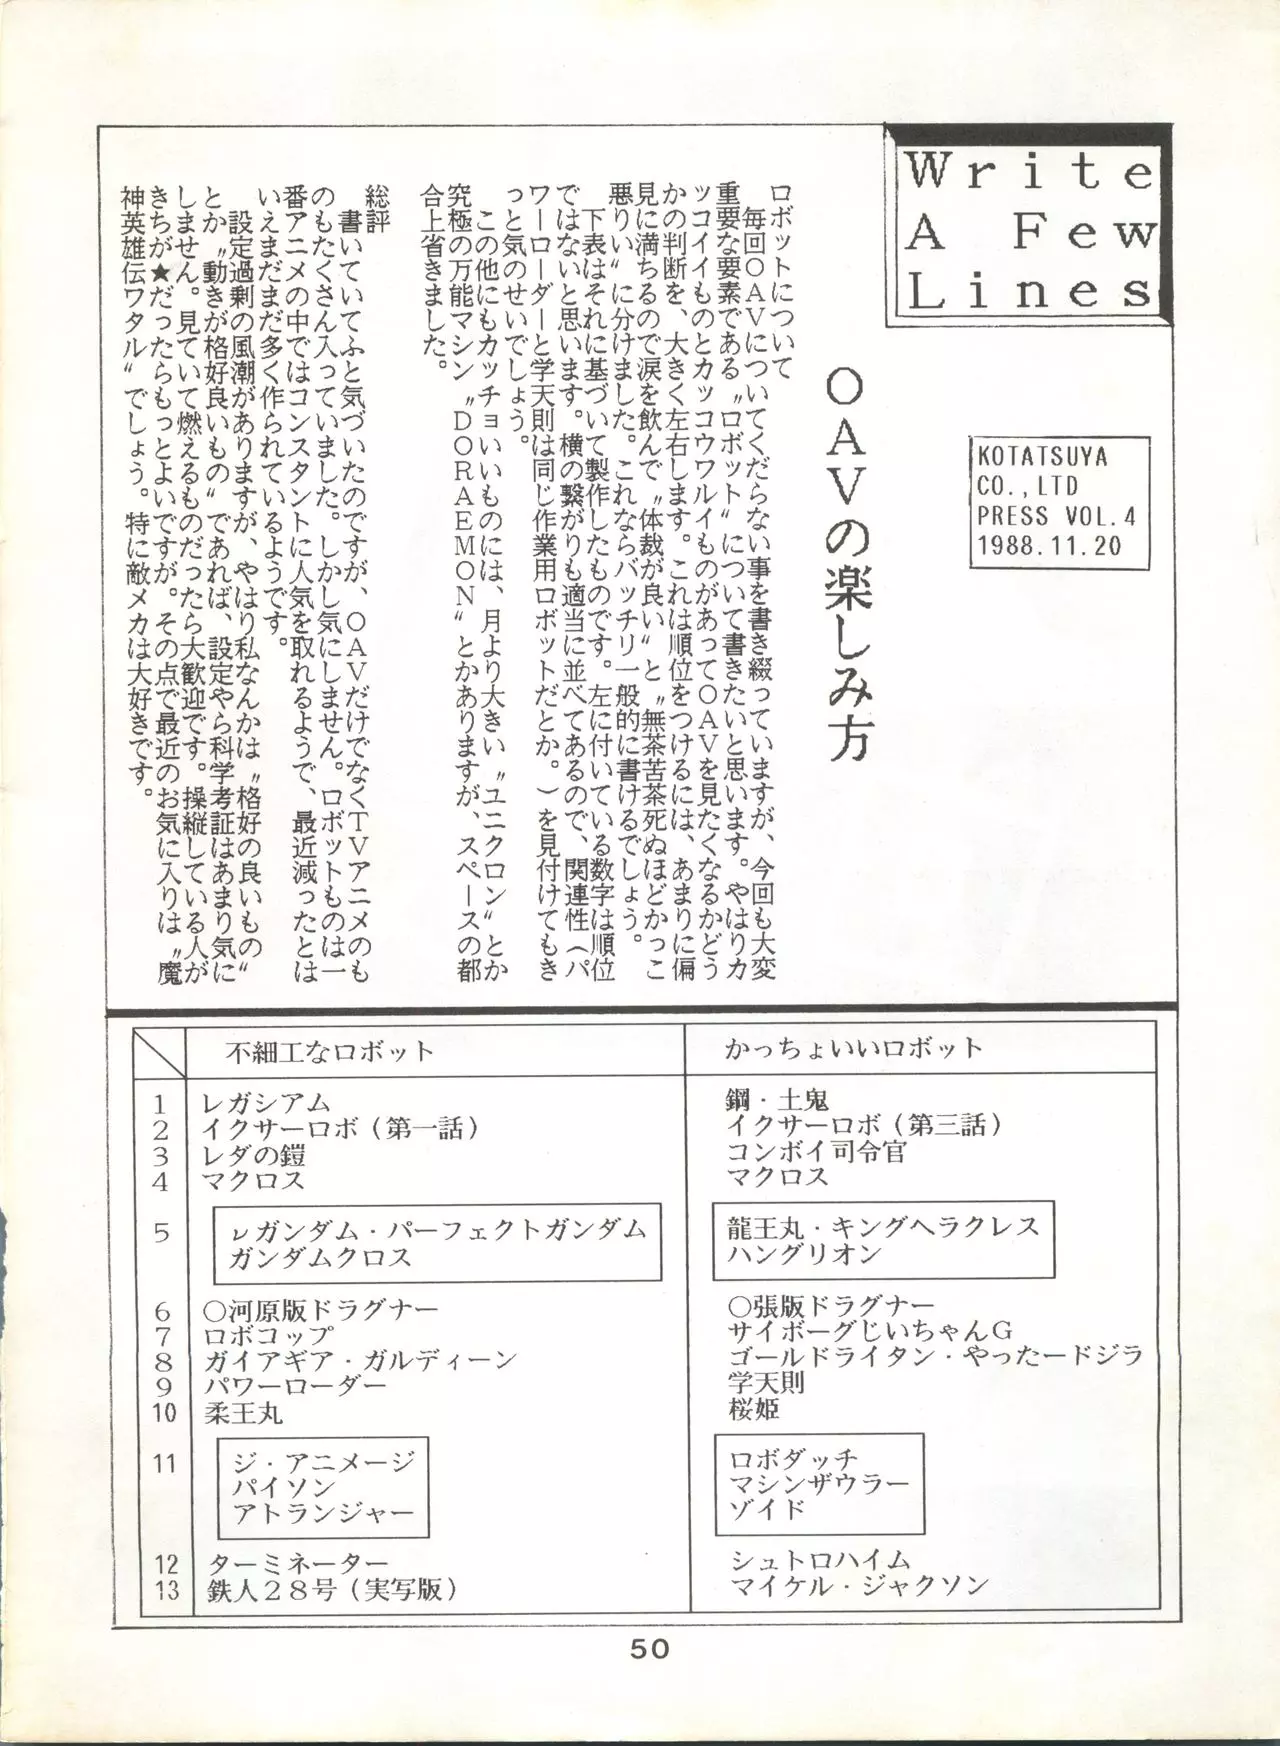 Write
A Few
Lines
KOTATSUYA
CO.,LTD
PRESS VOL.4
1988.11.20
OAVの楽しみ方
ロボットについて
毎回OAVについてくだらない事を書き綴っていますが、今回も大変
重要な要素である〝ロボット〟について書きたいと思います。やはりカ
ッコイイものとカッコウワルイものがあってOAVを見たくなるかどう
かの判断を、大きく左右します。これは順位をつけるには、あまりに偏
見に満ちるので涙を飲んで〝体裁が良い〟と〝無茶苦茶死ぬほどかっこ
悪りい〟に分けました。これならバッチリ一般的に書けるでしょう。
下表はそれに基づいて製作したものです。左に付いている数字は順位
ではないと思います。横の繋がりも適当に並べてあるので、関連性(パ
ワーローダーと学天則は同じ作業用ロボットだとか。)を見付けてもき
っと気のせいでしょう。
この他にもカッチョいいものには、月より大きい〝ユニクロン〟とか
究極の万能マシン〝DORAEMON〟とかありますが、スペースの都
合上省きました。
総評
書いていてふと気づいたのですが、OAVだけでなくTVアニメのも
のもたくさん入っていました。しかし気にしません。ロボットものは一
番アニメの中ではコンスタントに人気を取れるようで、最近減ったとは
いえまだまだ多く作られているようです。
設定過剰の風潮がありますが、やはり私なんかは〝格好の良いもの〟
とか〝動きが格好良いもの〟であれば、設定やら科学考証はあまり気に
しません。見ていて燃えるものだったら大歓迎です。操縦している人が
きちが★だったらもっとよいですが。その点で最近のお気に入りは〝魔
神英雄伝ワタル〟でしょう。特に敵メカは大好きです。
不細工なロボット かっちょいいロボット
1 レガシアム 鋼・土鬼
2 イクサーロボ(第一話) イクサーロボ(第三話)
3 レダの鎧 コンボイ司令官
4 マクロス マクロス
5 νガンダム・パーフェクトガンダム 龍王丸・キングヘラクレス
ガンダムクロス ハングリオン
6 ○河原版ドラグナー ○張版ドラグナー
7 ロボコップ サイボーグじいちゃんG
8 ガイアギア・ガルディーン ゴールドライタン・やったードジラ
9 パワーローダー 学天則
10 柔王丸 桜姫
11 ジ・アニメージ ロボダッチ
パイソン マシンザウラー
アトランジャー ゾイド
12 ターミネーター シュトロハイム
13 鉄人28号(実写版) マイケル・ジャクソン
50